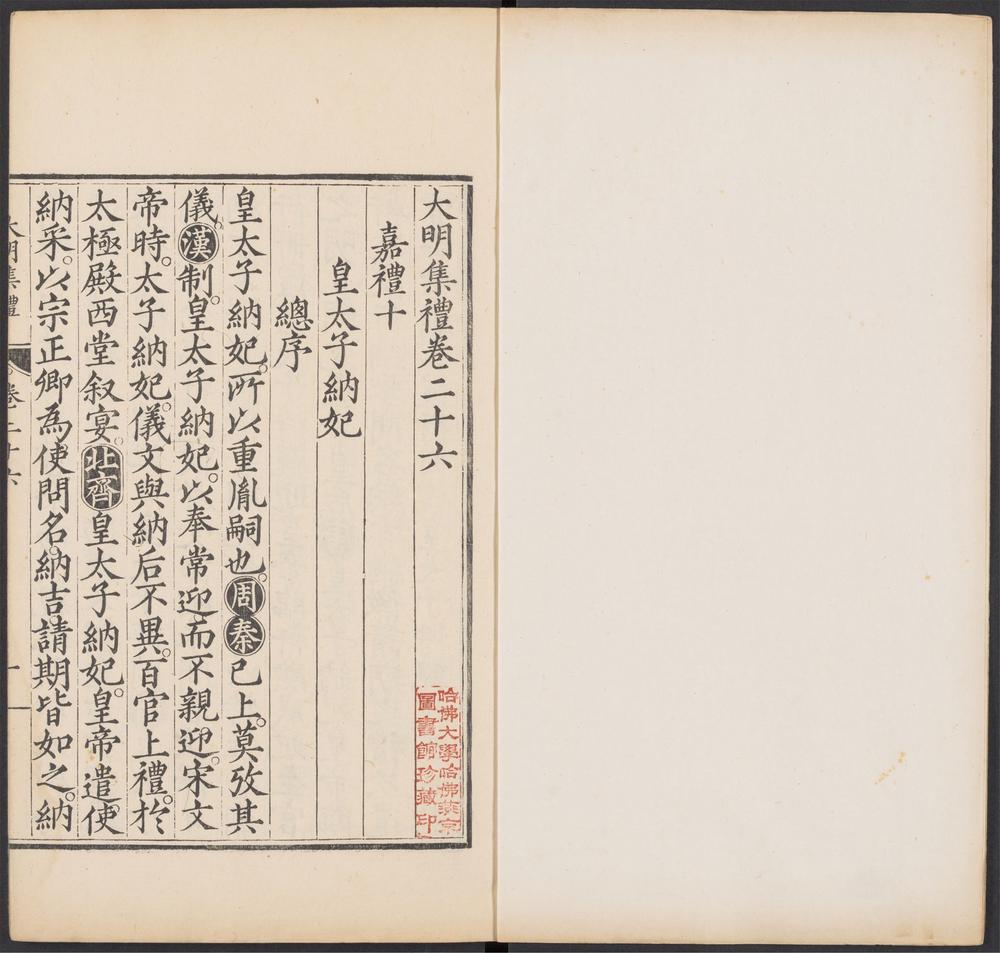 大明集禮卷二十六
嘉禮十
皇太子納妃
總序
皇太子納妃。所以重胤嗣也。周秦已上。莫攷其
儀。漢制。皇太子納妃。以奉常迎而不親迎。宋文
帝時。太子納妃。儀文與納后不異。百官上禮。於
太極殿西堂叙宴。北齊皇太子納妃。皇帝遣使
納采。以宗正卿為使。問名。納吉。請期皆如之。納
大明集禮 卷二十六 一
哈佛大學哈佛燕京
圖書館珍藏印